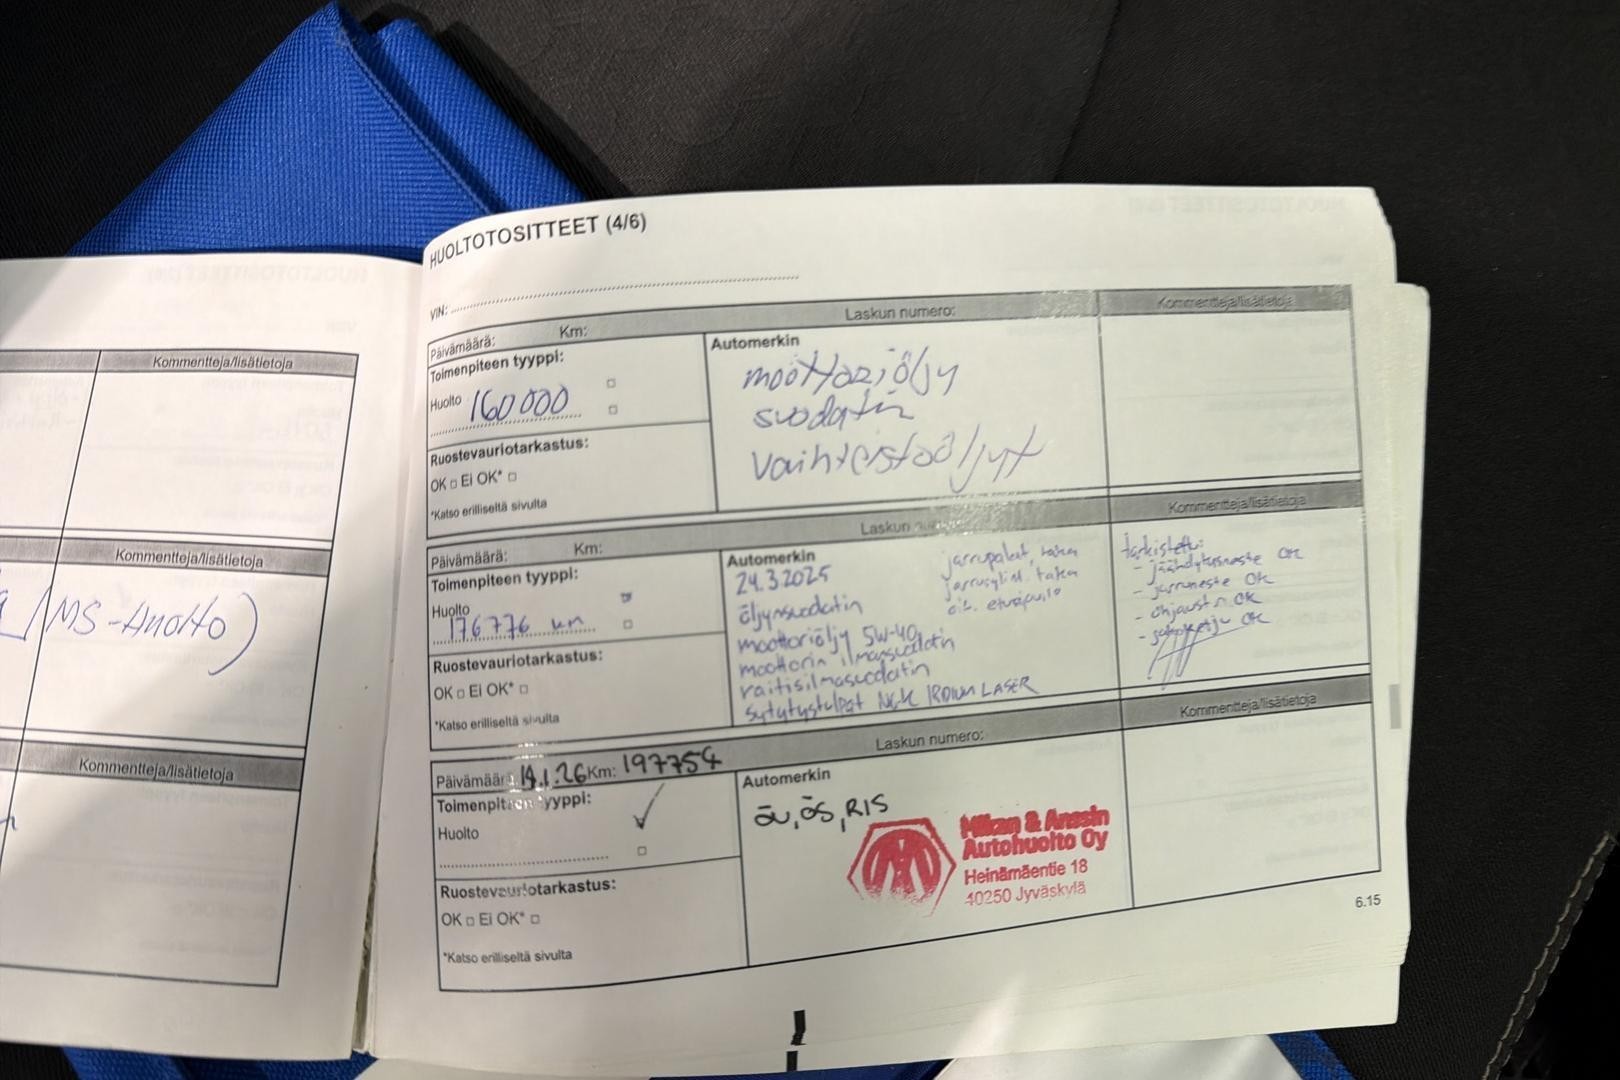 Kommentteja/lisätietoja
(MS-Anotto)
Kommentteja/lisätietoja
Kommentteja/lisätietoja
HUOLTOTOSITTEET (4/6)
VIN:
Päivämäärä: Km: Laskun numero: Kommentteja/lisätietoja
Toimenpiteen tyyppi:
Huolto 160 000
Ruostevauriotarkastus:
OK □ Ei OK* □
*Katso erilliseltä sivulta
Automerkin
moottoriöljy
suodatin
vaihteistoöljyt
Päivämäärä: Km: Laskun Kommentteja/lisätietoja
Toimenpiteen tyyppi:
Huolto
176776 km
Ruostevauriotarkastus:
OK □ Ei OK* □
*Katso erilliseltä sivulta
Automerkin
24.3.2025
öljynsuodatin
moottoriöljy 5W-40
moottorin ilmansuodatin
raitisilmasuodatin
sytytystulpat NGK IRIDIUM LASER
jarrupalat, taka
jarrusylint. taka
oik. etuajovalo
tarkistettu:
- jäähdytysneste OK
- jarruneste OK
- ohjaustn OK
- OK
Päivämäärä 14.1.26 Km: 197754 Laskun numero: Kommentteja/lisätietoja
Toimenpiteen tyyppi:
Huolto
Ruostevauriotarkastus:
OK □ Ei OK* □
*Katso erilliseltä sivulta
Automerkin
öv, ös, RIS
Mikan & Anssin
Autohuolto Oy
Heinämäentie 18
40250 Jyväskylä
6.15